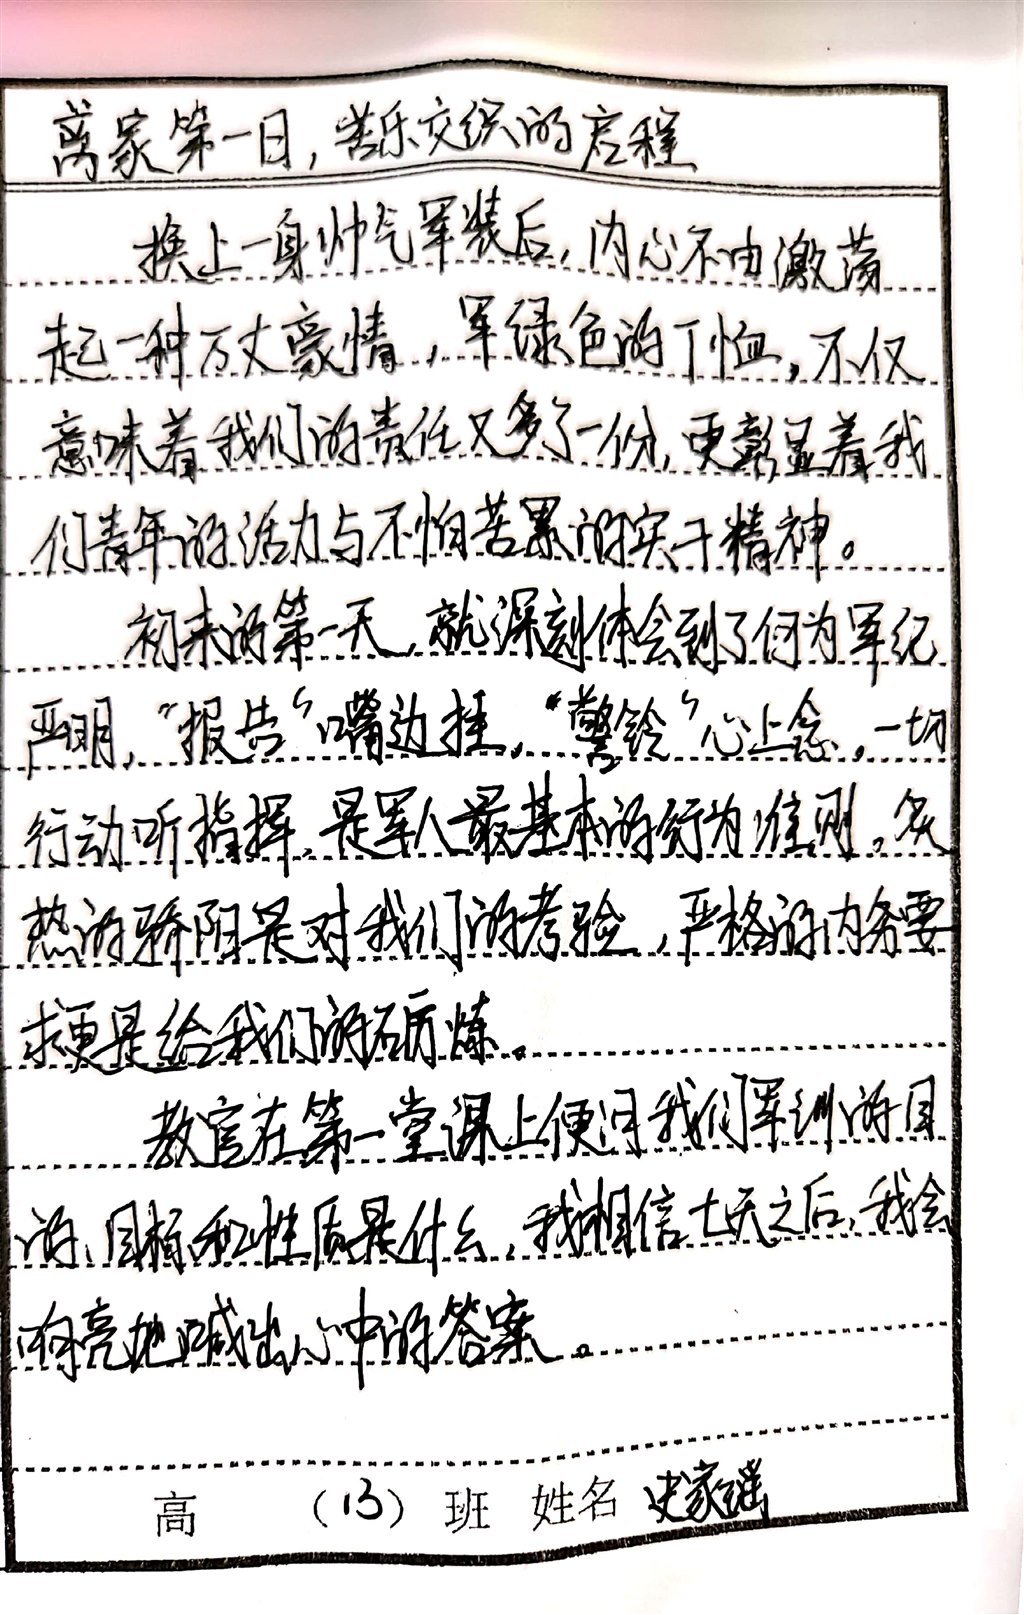 离家第一日，苦乐交织的启程
换上一身帅气军装后，内心不由激荡
起一种万丈豪情，军绿色的T恤，不仅
意味着我们的责任又多了一份，更彰显着我
们青年的活力与不怕苦累的实干精神。
初来的第一天，就深刻体会到了何为军纪
严明，“报告”嘴边挂，“警铃”心上念，一切
行动听指挥、是军人最基本的行为准则。炙
热的骄阳是对我们的考验，严格的内务要
求更是给我们的砺炼。
教官在第一堂课上便问我们军训的目
的、目标和性质是什么，我相信七天之后，我会
响亮地喊出心中的答案。
高 （13）班 姓名 史家瑶